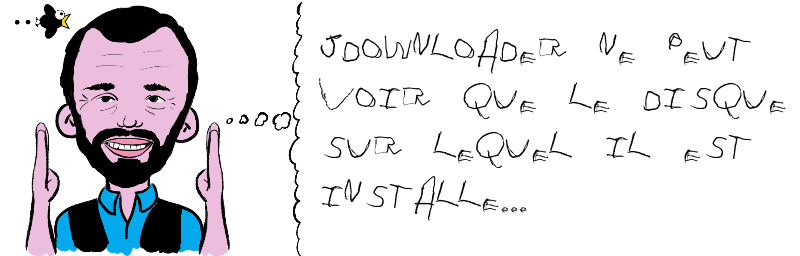 JDOWNLOADER NE PEUT
VOIR QUE LE DISQUE
SUR LEQUEL IL EST
INSTALLE...